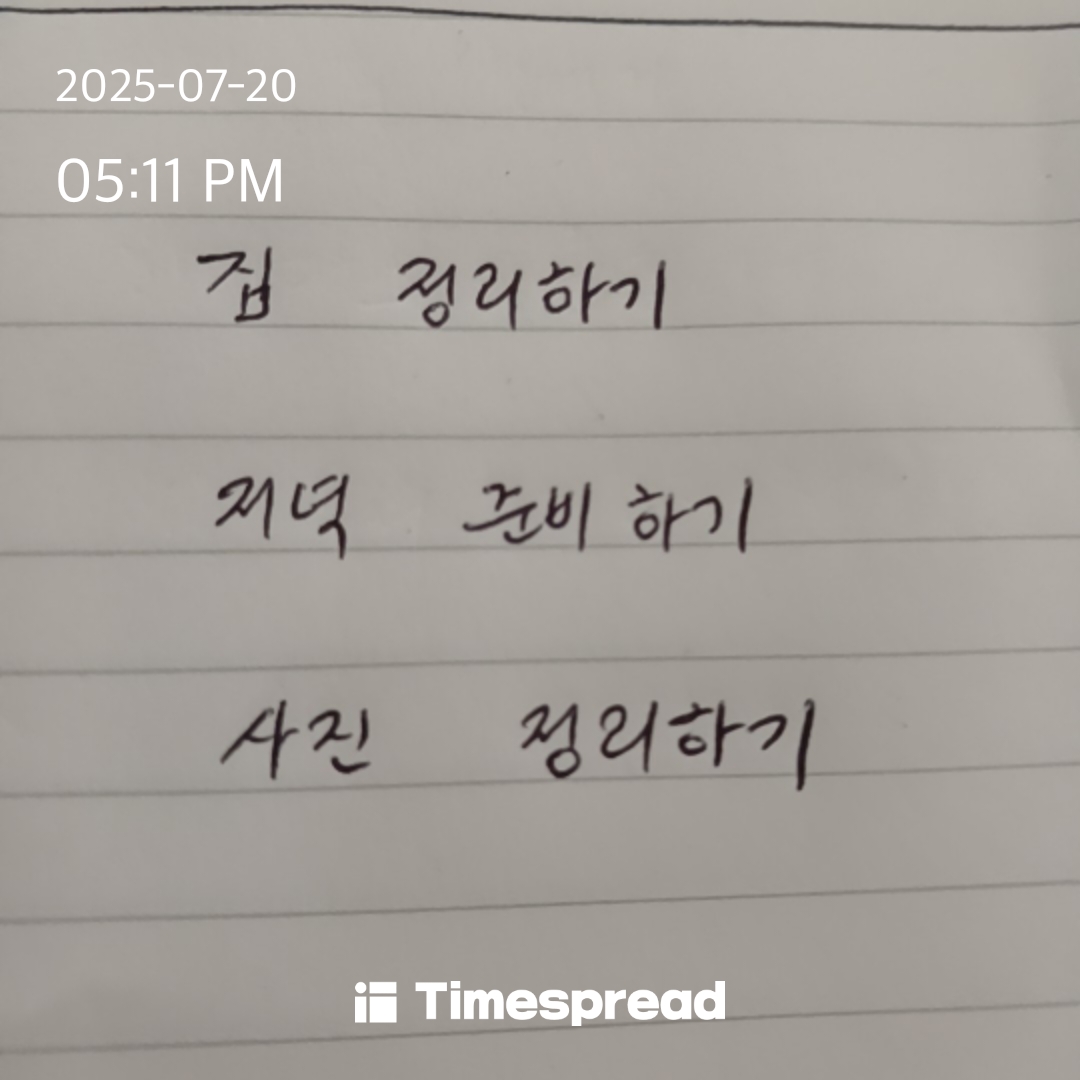 2025-07-20
05:11 PM
집 정리하기
저녁 준비하기
사진 정리하기
Timespread